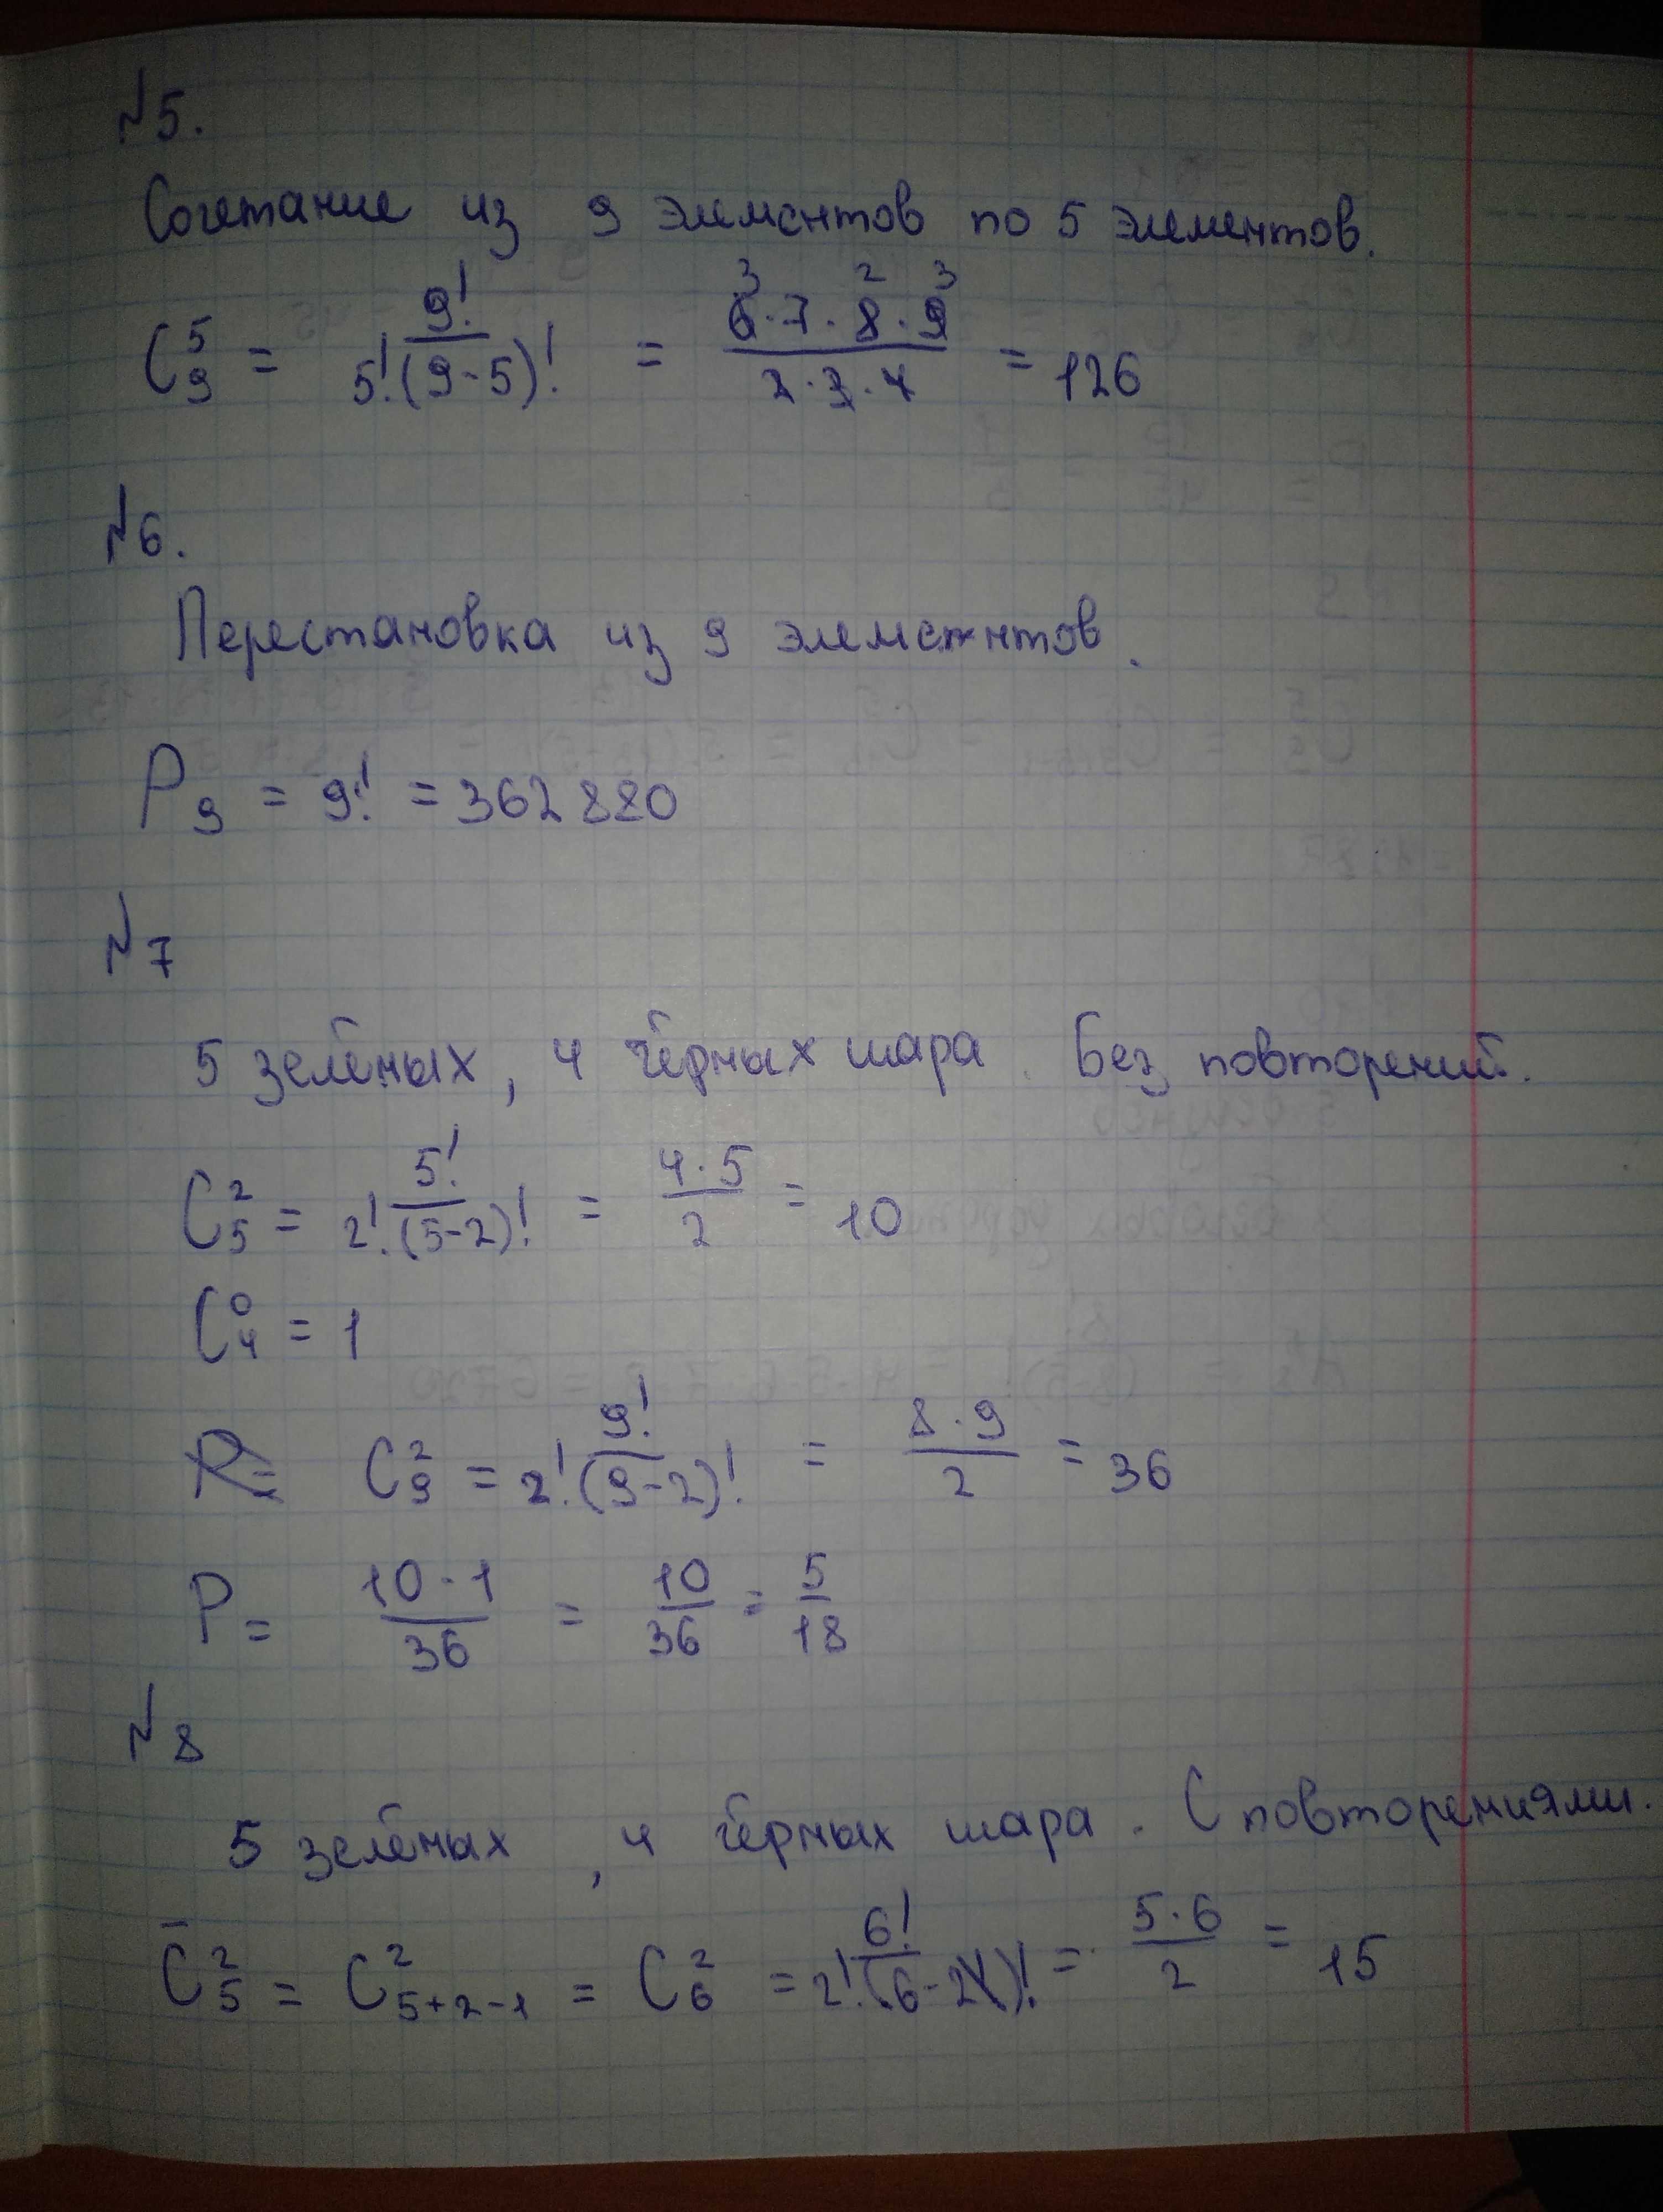 №5.
Сочетание из 9 элементов по 5 элементов.
C₉⁵ = 9! / 5!(9-5)! = 6·7·8·9 / 2·3·4 = 126
№6.
Перестановка из 9 элементов.
P₉ = 9! = 362880
№7
5 зелёных, 4 чёрных шара. Без повторений.
C₅² = 5! / 2!(5-2)! = 4·5 / 2 = 10
C₄⁰ = 1
C₉² = 9! / 2!(9-2)! = 8·9 / 2 = 36
P = 10·1 / 36 = 10/36 = 5/18
№8
5 зелёных, 4 чёрных шара. С повторениями.
C̄₅² = C²₅₊₂₋₁ = C₆² = 6! / 2!(6-2)! = 5·6 / 2 = 15